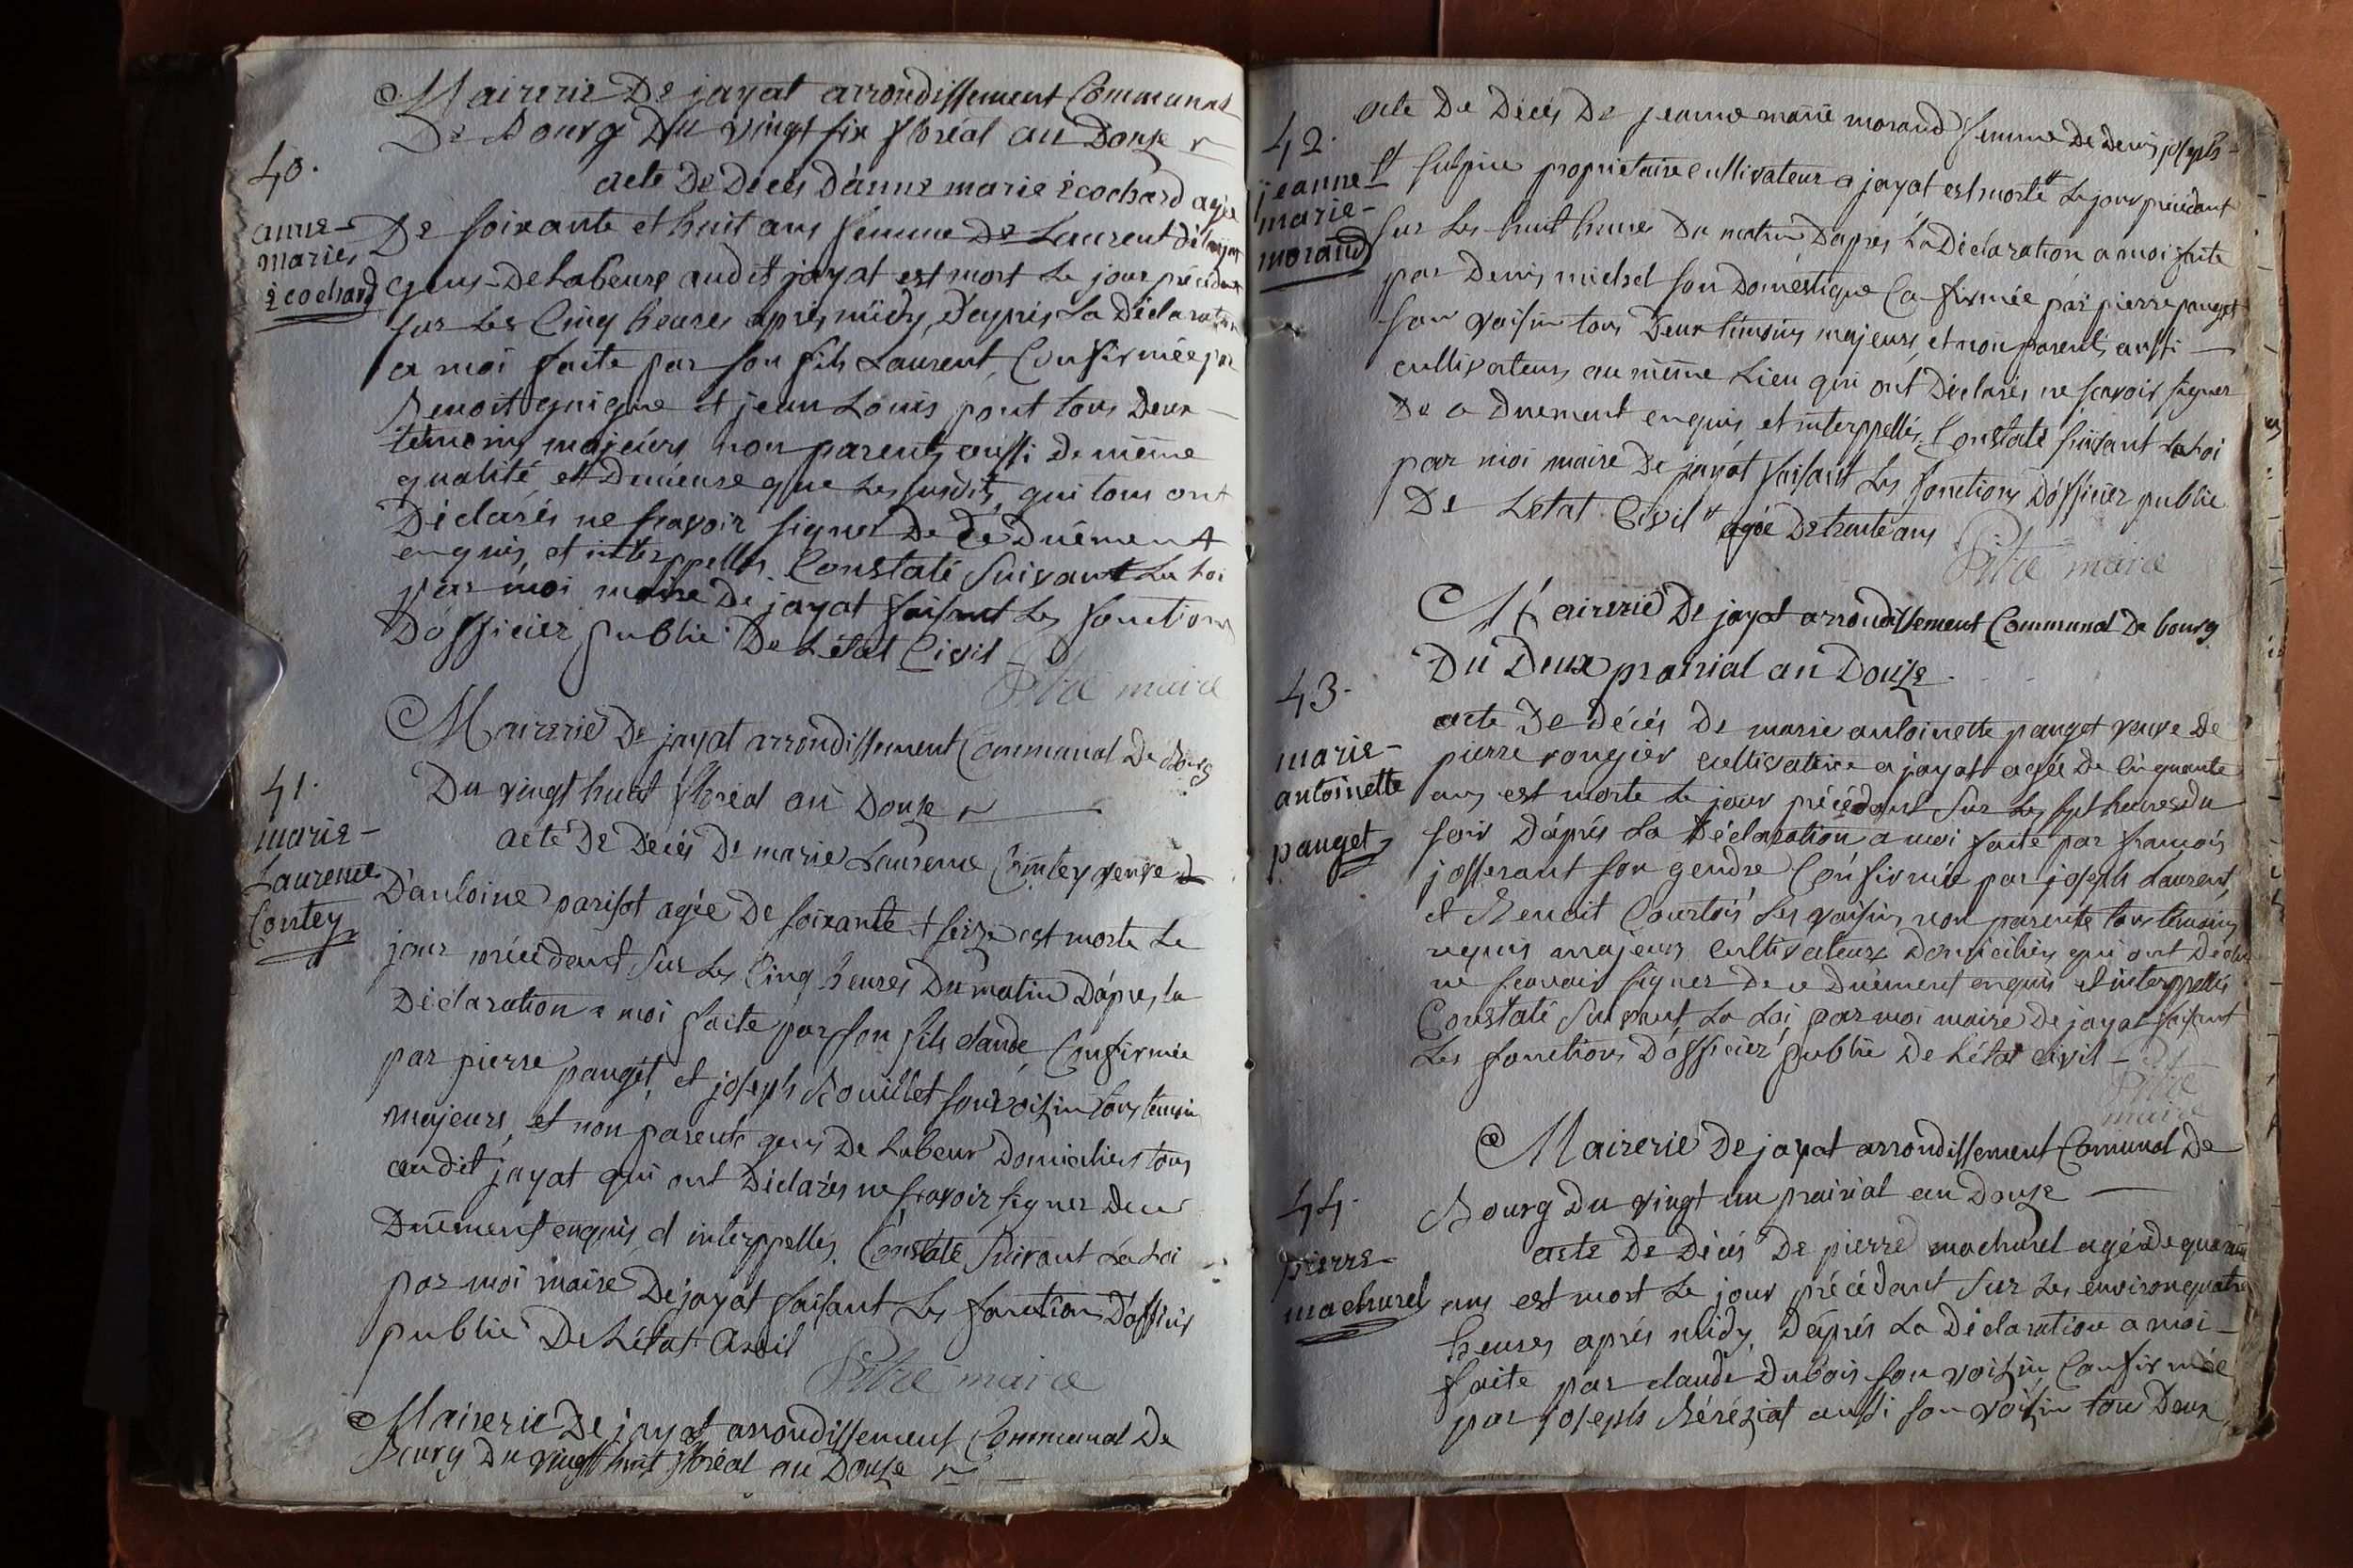 Mairerie De jayat arrondissement Communal
De Bourg Du vingt six floréal an Douze
40.
acte De Decés D'anne marie écochard agée
anne-
marie
écochard
De soixante et huit ans femme De Laurent
gens De Labeure audit jayat est mort Le jour précédant
sur Les Cinq heures aprés midy, D'aprés La Déclaration
a moi faite par son fils Laurent, Confirmée par
Benoit guigue et jean Louis pont tous Deux
temoins majeurs non parents aussi De même
qualité, et Dmeure que Les susdits, qui tous ont
Déclarés ne scavoir signer De ce Duëment
enquis, et interppellés. Constaté Suivant La Loi
par moi maire De jayat faisant Les fonctions
D'officier public De L'état Civil
Pitre maire
Mairerie De jayat arrondissement Communal De Bourg
Du vingt huit floréal an Douze
41.
marie-
Laurence
Contey
acte De Decés De marie Laurence Comtey veuve
D'antoine parisot agée De soixante + seize est morte Le
jour précédant sur Les Cinq heures Du matin D'aprés la
Déclaration a moi faite par son fils claude, Confirmée
par pierre pauget, et joseph Bouillet son voisin tous temoin
majeurs, et non parents gens De Labeur Domiciliers tous
audit jayat qui ont Déclarés ne scavoir signer De ce
Duëment enquis et interppellés. Constaté Suivant La Loi
par moi maire De jayat faisant Les fonction D'officier
public De L'état Civil
Pitre maire
Mairerie De jayat arrondissement Communal De
Bourg Du vingt huit floréal an Douze
42.
jeanne
marie-
morand
acte De Décés De jeanne marie morand femme De Denis joseph-
Sulpice propriétaire cultivateur a jayat est morte Le jour précédant
sur Les huit heures Du matin D'aprés La Déclaration a moi faite
par Denis michel son Doméstique Confirmée par pierre pauget
son voisin tous Deux témoins majeurs, et non parents aussi
cultivateurs au même Lieu qui ont Déclarés ne scavoir signer
De ce Duement enquis et interppellés. Constaté suivant La Loi
par moi maire De jayat faisant Les fonctions D'officier public
De L'état Civil agée De trente ans
Pitre maire
Mairerie De jayat arrondissement Communal De bourg
Du Deux prairial an Douze.
43.
marie-
antoinette
pauget
acte De Décés De marie antoinette pauget veuve De
pierre rongier cultivatrice a jayat agée De Cinquante
ans est morte Le jour précédant Sur Les sept heures du
soir D'aprés La Déclaration a moi faite par francois
josserant son gendre Confirmée par joseph Laurent,
et Benoit Courtois Ses voisins non parents tous témoins
requis majeurs cultivateurs Domiciliés qui ont Déclaré
ne scavoir signer De ce Duëment enquis et interppellés
Constaté Suivant La Loi par moi maire De jayat faisant
Les fonctions D'officier public De L'état civil
Pitre
maire
Mairerie De jayat arrondissement Comunal De
Bourg Du vingt un prairial an Douze
44.
pierre-
machurel
acte De Décés De pierre machurel agé De quarante
ans est mort Le jour précédant Sur Les environ quatre
heures aprés midy, D'aprés La Déclaration a moi
faite par claude Dubois son voisin Confirmée
par joseph Béréziat aussi son voisin tous Deux